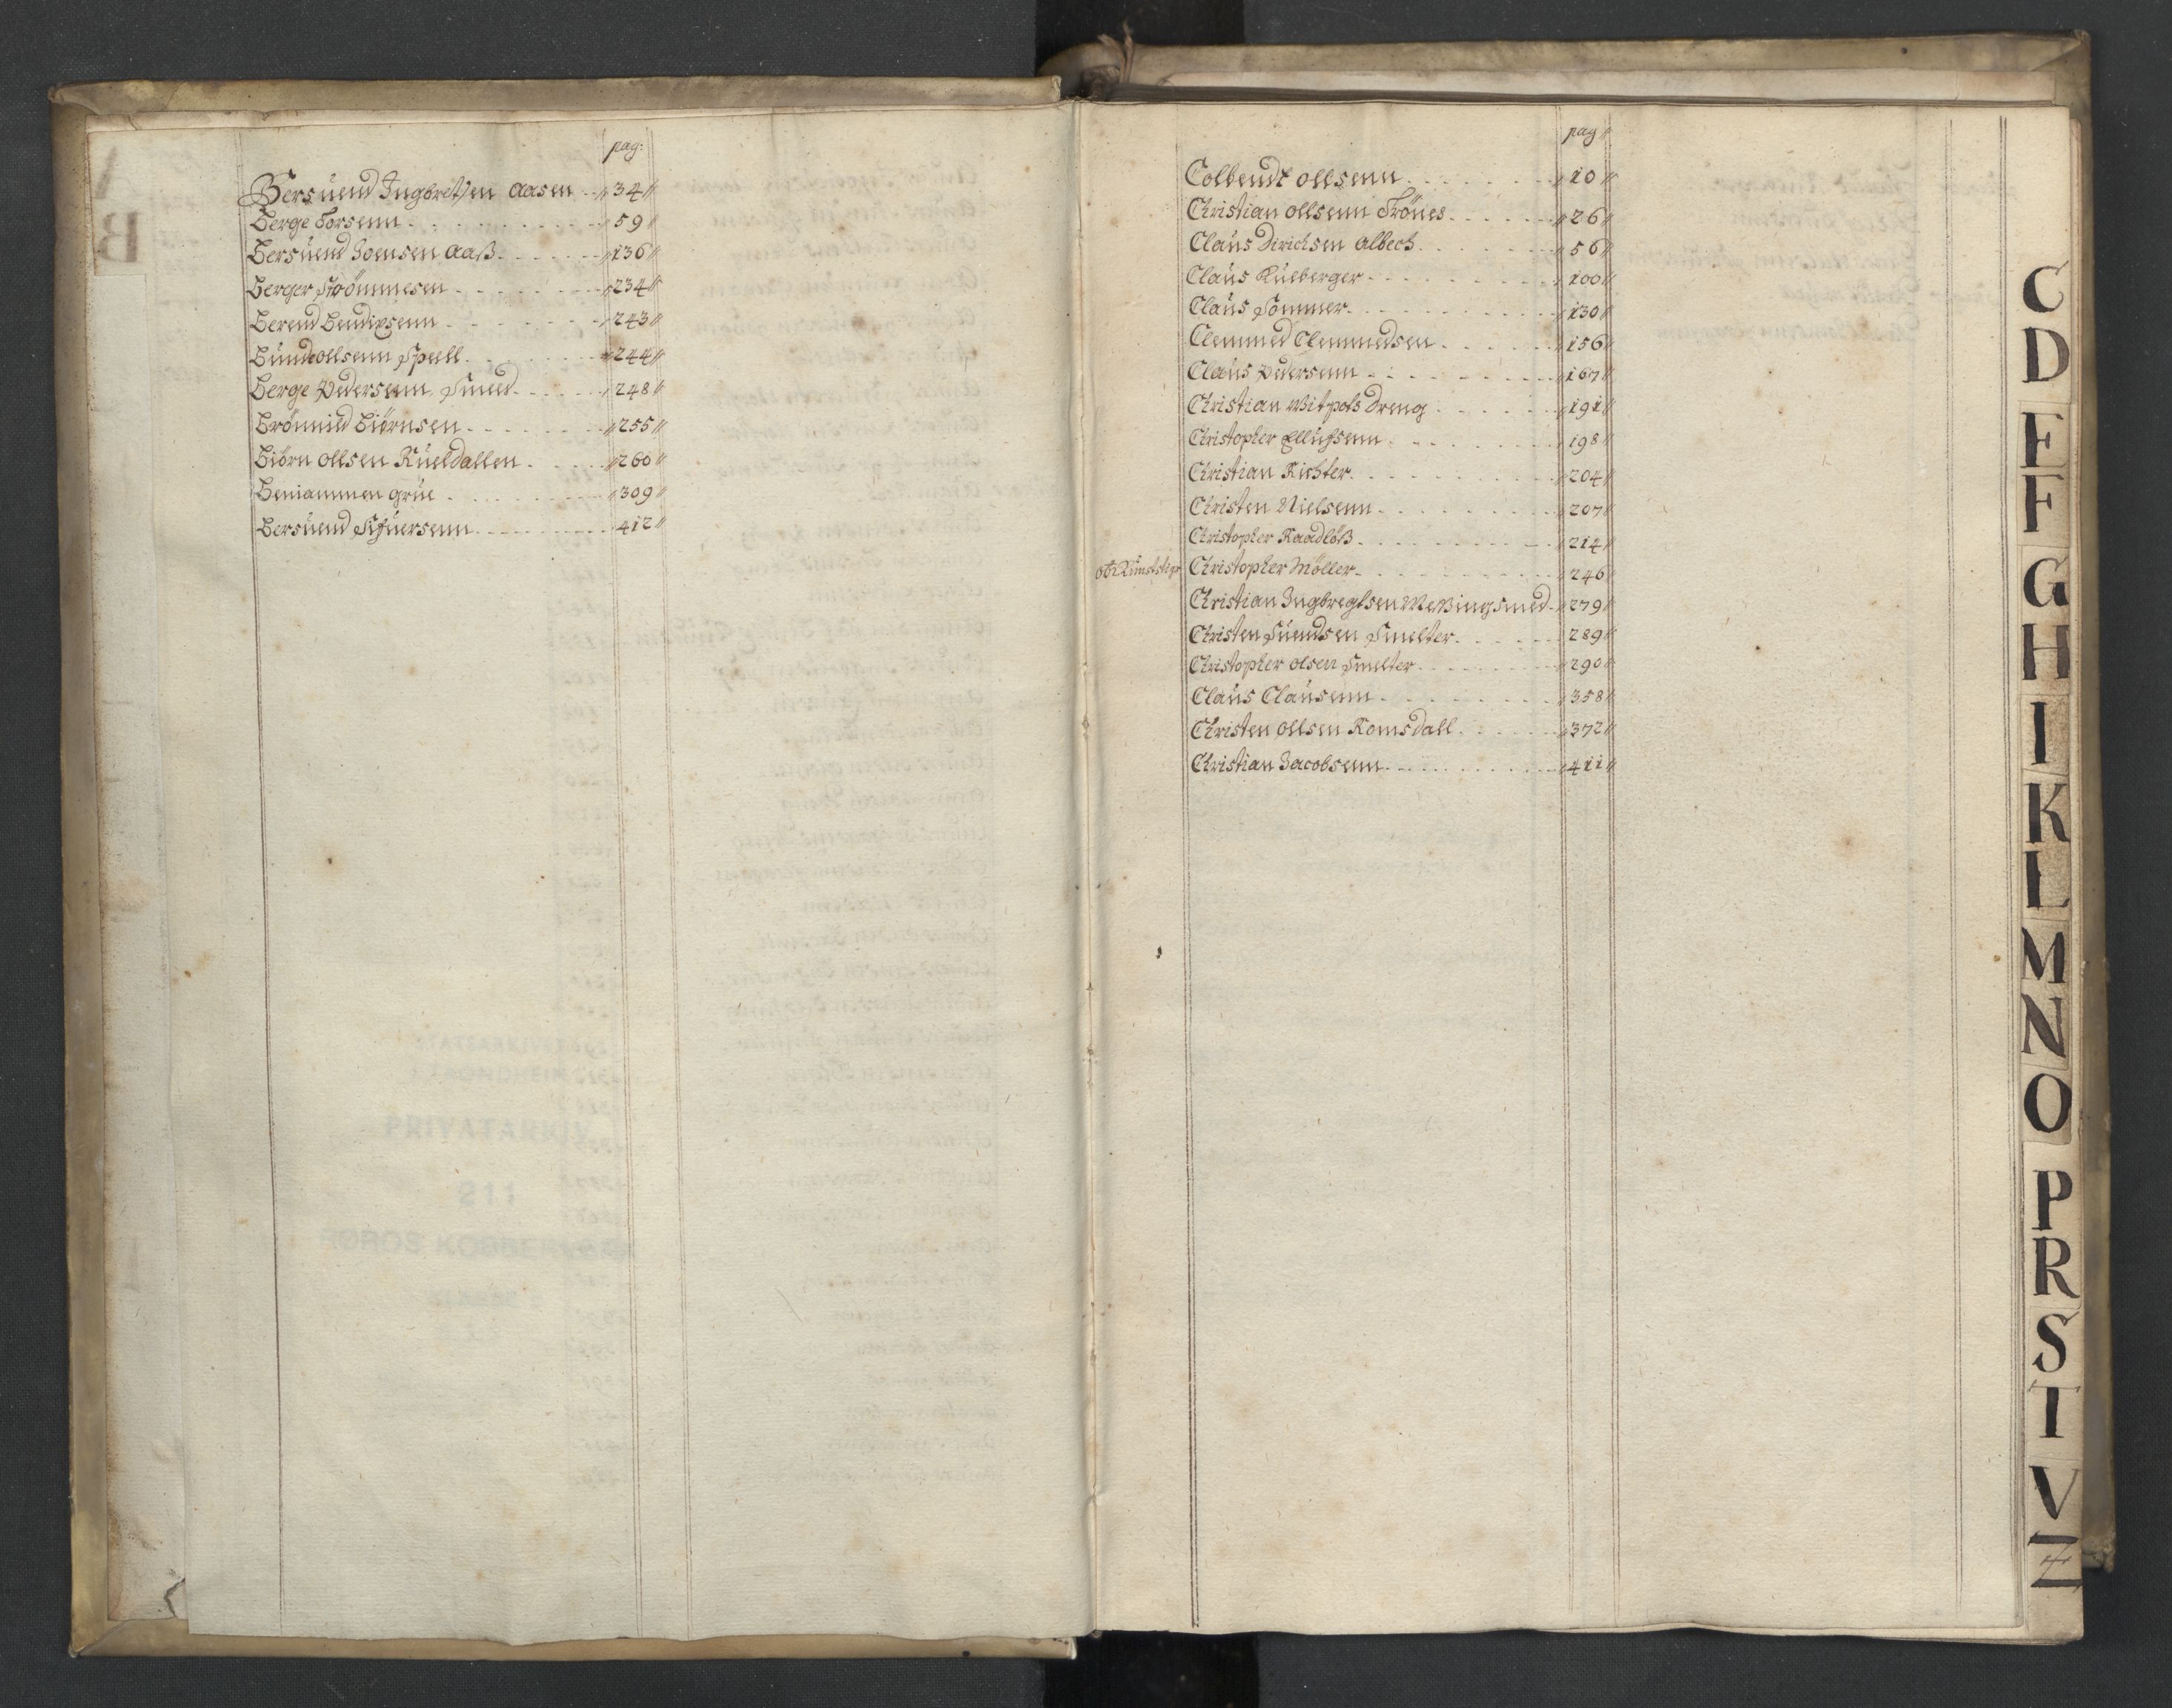 pag:
Bersuend Ingbretsen Aasen 34
Berge Torsenn 59
Bersuend Joensen Aaß 136
Berger Strömmesen 234
Berend Bendixsenn 243
Bunde ollsenn Spell 244
Berge Pedersenn Smed 248
Brönnild Biörnsen 255
Biörn ollsen Kueldallen 260
Beniammen Grüe 309
Bersuend Sifuersenn 412
pag
Colbendt ollsenn 10
Christian ollsenn Trönes 26
Claus Dirichsen Albech 56
Claus Kulberger 100
Claus Sommer 130
Clemmed Clemmedsen 156
Claus Pedersenn 167
Christian Witpols Dreng 191
Christopher Ellufsenn 198
Christian Richter 204
Christen Nielsenn 207
Christopher Raadlöß 214
Christopher Möller 246
Christian Ingbregtsen Meßingsmed 279
Christen Suendsen Smelter 289
Christopher olsen Smelter 290
Claus Clausenn 358
Christen ollsen Romsdall 372
Christian Jacobsenn 411
C
D
E
F
G
H
I
K
L
M
N
O
P
R
S
T
V
Z